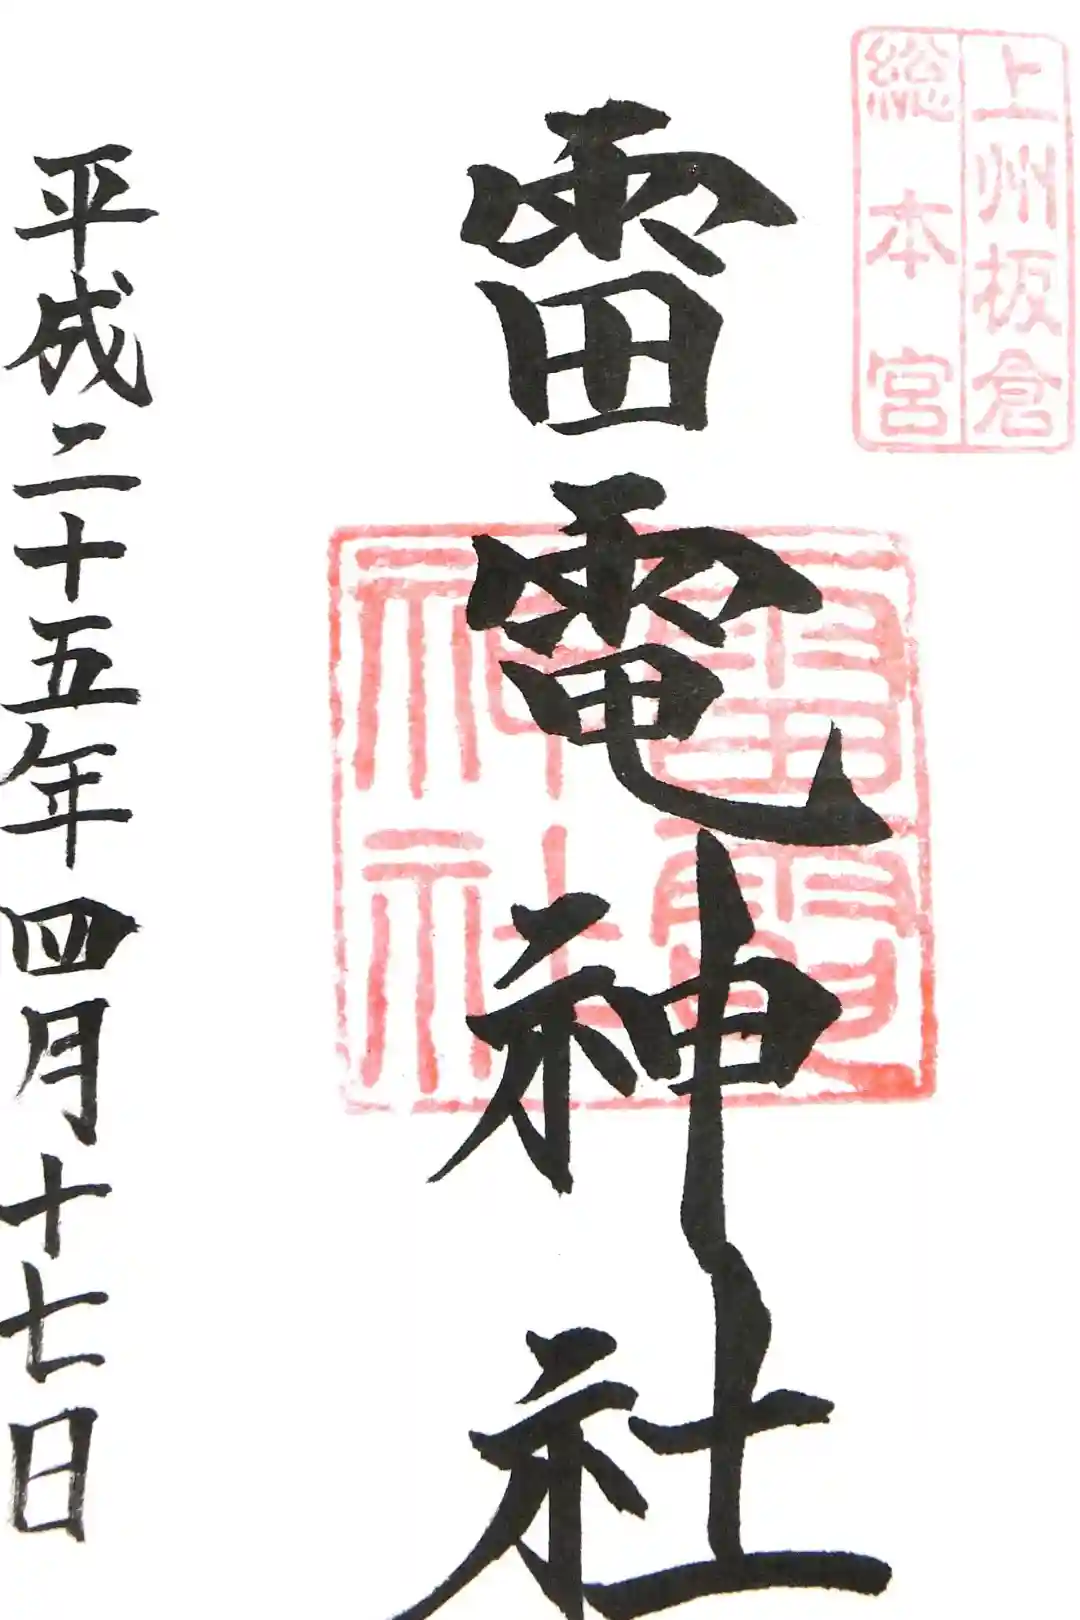 上州板倉
総本宮
雷電神社
雷電神社
平成二十五年四月十七日